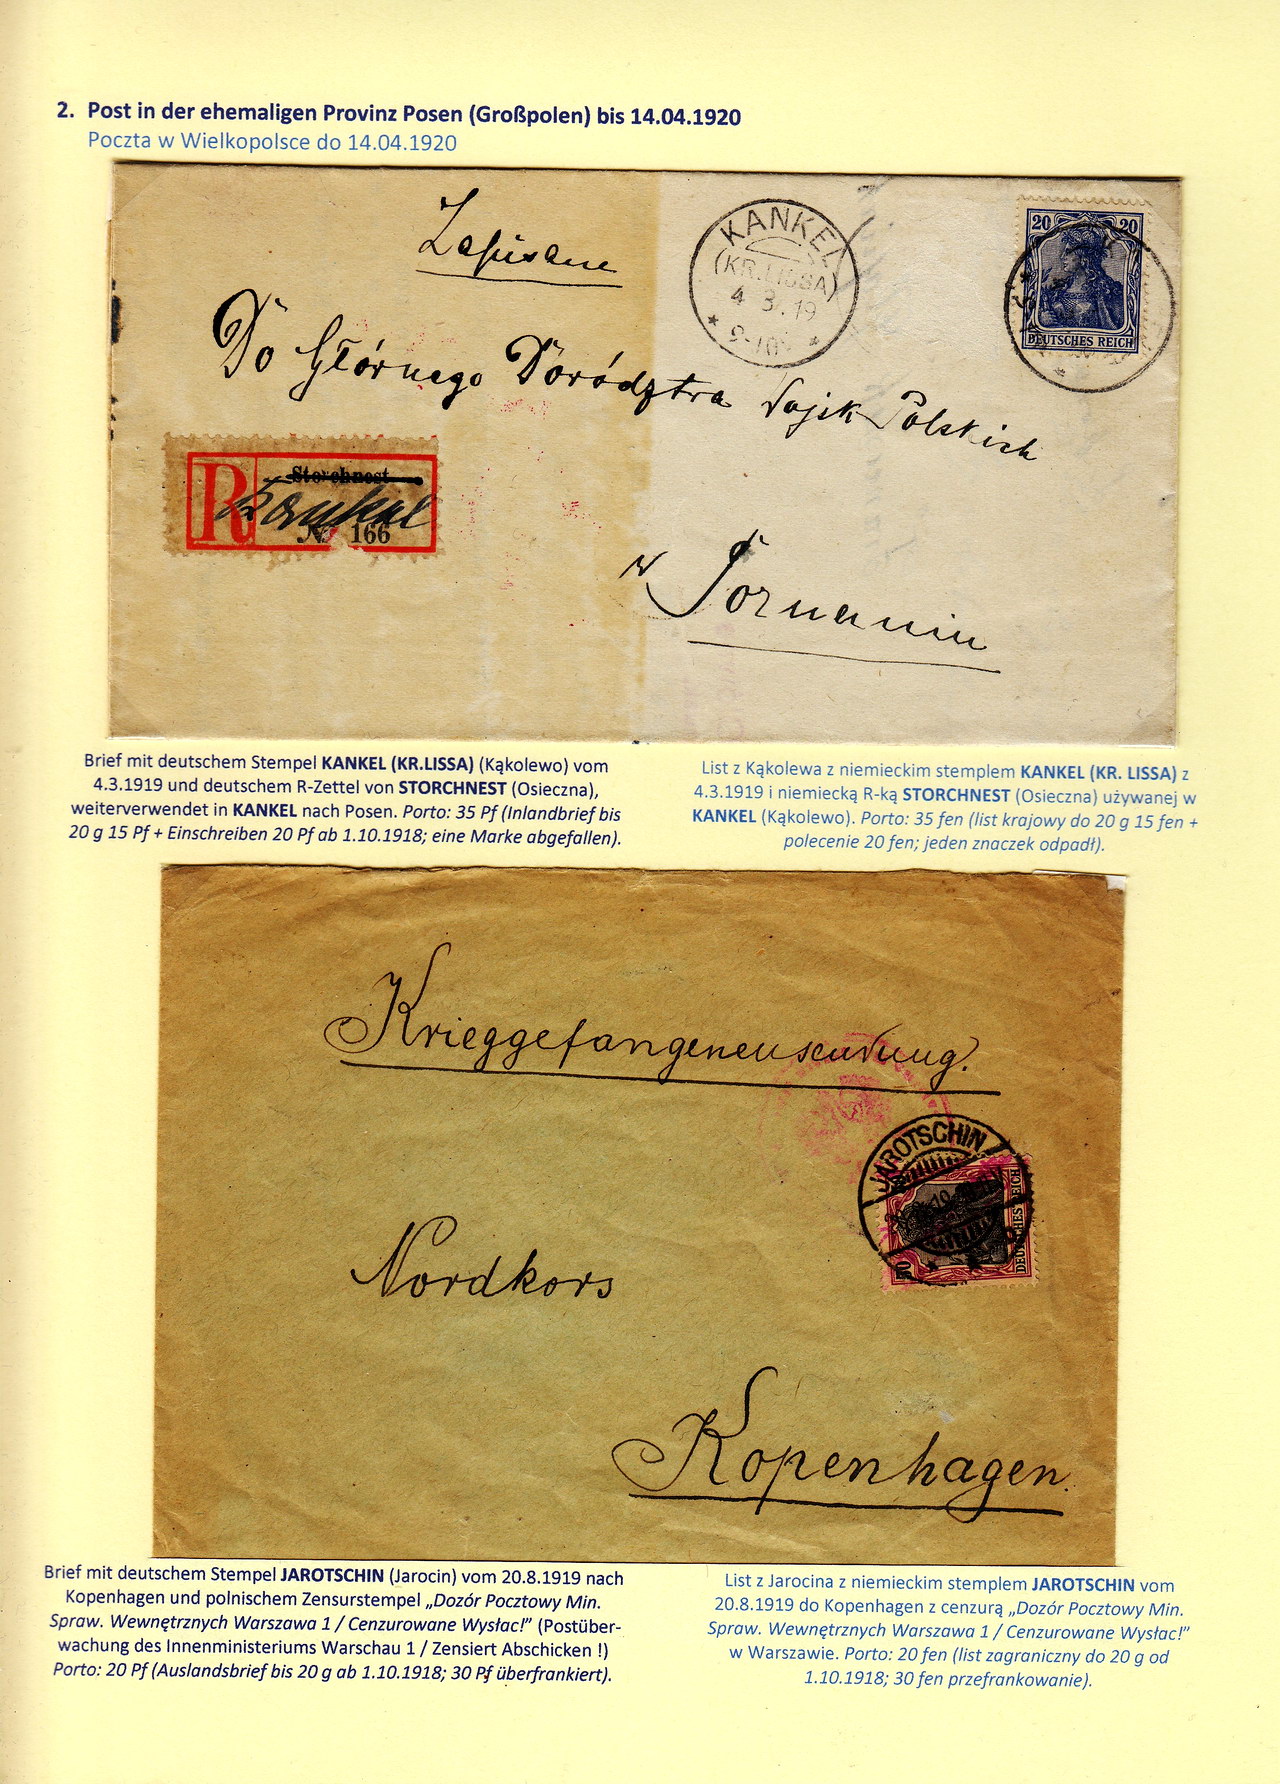 2. Post in der ehemaligen Provinz Posen (Großpolen) bis 14.04.1920
Poczta w Wielkopolsce do 14.04.1920
Zapisane
KANKEL
(KR.LISSA)
4 3. 19
9-10
20 20
DEUTSCHES REICH
Do Głównego Dowództwa Wojsk Polskich
R
Storchnest
Kankel
№ 166
w Poznaniu
Brief mit deutschem Stempel KANKEL (KR.LISSA) (Kąkolewo) vom
4.3.1919 und deutschem R-Zettel von STORCHNEST (Osieczna),
weiterverwendet in KANKEL nach Posen. Porto: 35 Pf (Inlandbrief bis
20 g 15 Pf + Einschreiben 20 Pf ab 1.10.1918; eine Marke abgefallen).
List z Kąkolewa z niemieckim stemplem KANKEL (KR. LISSA) z
4.3.1919 i niemiecką R-ką STORCHNEST (Osieczna) używanej w
KANKEL (Kąkolewo). Porto: 35 fen (list krajowy do 20 g 15 fen +
polecenie 20 fen; jeden znaczek odpadł).
Krieggefangenensendung.
JAROTSCHIN
50
DEUTSCHES REICH
Nordkors
Kopenhagen.
Brief mit deutschem Stempel JAROTSCHIN (Jarocin) vom 20.8.1919 nach
Kopenhagen und polnischem Zensurstempel „Dozór Pocztowy Min.
Spraw. Wewnętrznych Warszawa 1 / Cenzurowane Wysłac!” (Postüber-
wachung des Innenministeriums Warschau 1 / Zensiert Abschicken !)
Porto: 20 Pf (Auslandsbrief bis 20 g ab 1.10.1918; 30 Pf überfrankiert).
List z Jarocina z niemieckim stemplem JAROTSCHIN vom
20.8.1919 do Kopenhagen z cenzurą „Dozór Pocztowy Min.
Spraw. Wewnętrznych Warszawa 1 / Cenzurowane Wysłac!”
w Warszawie. Porto: 20 fen (list zagraniczny do 20 g od
1.10.1918; 30 fen przefrankowanie).